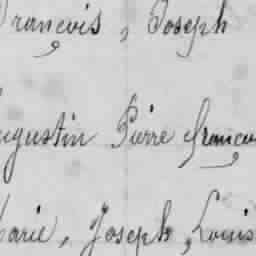 François, Joseph
Augustin Pierre François
Marie, Joseph, Louis